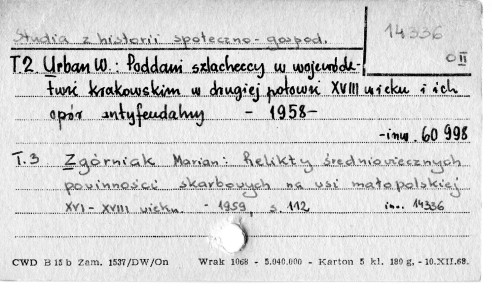 Studia z historii społeczno-gospod.
14336
O II
T.2 Urban W.: Poddani szlacheccy w wojewódz-
twie krakowskim w drugiej połowie XVIII wieku i ich
opór antyfeudalny - 1958-
-inw. 60 998
T.3 Zgórniak Marian: Relikty średniowiecznych
powinności skarbowych na wsi małopolskiej
XVI-XVIII wieku. - 1959, s. 112 inw. 14336
CWD B 15 b Zam. 1537/DW/On Wrak 1068 - 5.040.000 - Karton 5 kl. 180 g. -10.XII.68.